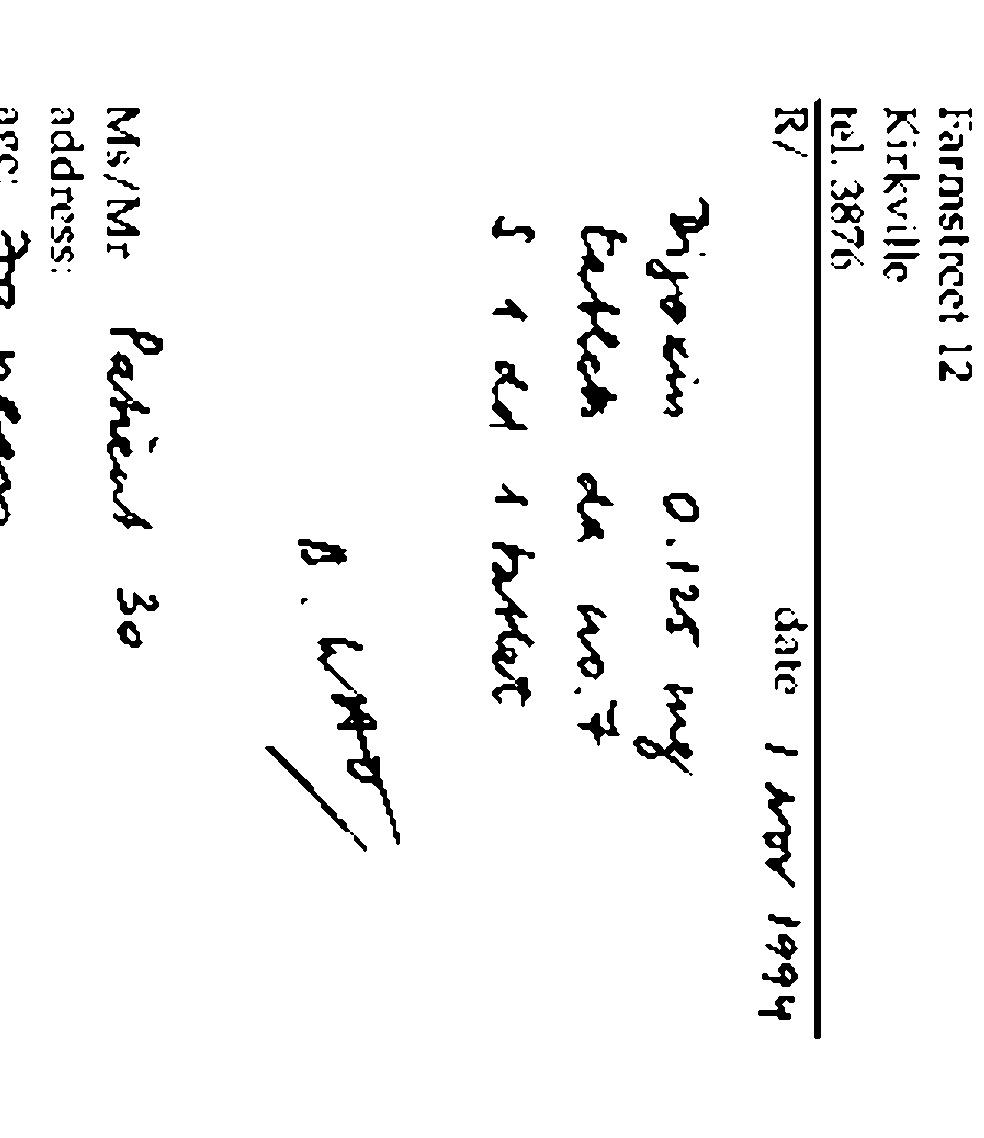 Farmstreet 12
Kirkville
tel. 3876
R/ date 1 Nov 1994
Digoxin 0.125 mg
tablets da no. 7
S 1 dd 1 tablet
Ms/Mr Patient 30
address:
age: